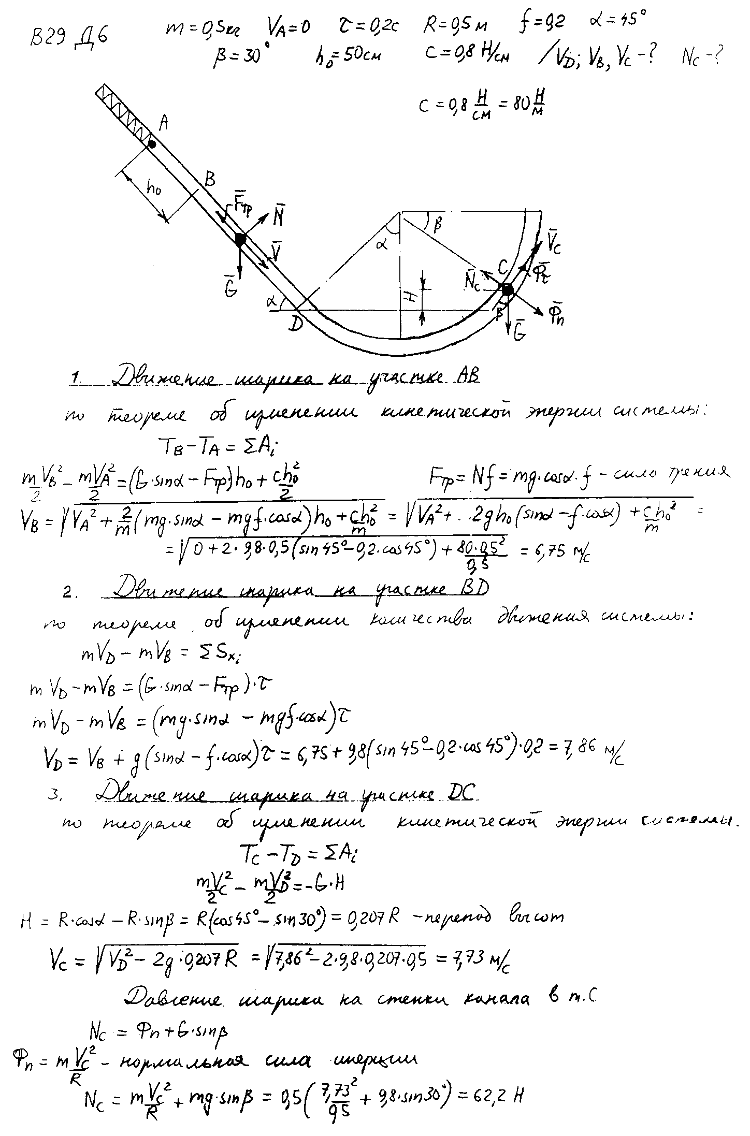 В29 Д6 m=0,5кг V_A=0 τ=0,2с R=0,5м f=0,2 α=45°
β=30° h₀=50см c=0,8 Н/см /V_D; V_B, V_C-? N_C-?
c=0,8 Н/см = 80 Н/м
A
h₀
B
F̄тр
N̄
V̄
Ḡ
α
D
α
β
H
C
N̄_C
V̄_C
Φ̄τ
Φ̄n
β
Ḡ
1. Движение шарика на участке АВ
по теореме об изменении кинетической энергии системы:
T_B-T_A=ΣA_i
mV_B²/2 - mV_A²/2 =(G·sinα-Fтр)h₀+ch₀²/2 Fтр=Nf=mg·cosα·f - сила трения
V_B=√(V_A²+2/m(mg·sinα-mgf·cosα)h₀+ch₀²/m) = √(V_A²+2gh₀(sinα-f·cosα)+ch₀²/m) =
=√(0+2·9,8·0,5(sin45°-0,2·cos45°)+80·0,5²/0,5) = 6,75 м/с
2. Движение шарика на участке BD
по теореме об изменении количества движения системы:
mV_D-mV_B=ΣS_xi
mV_D-mV_B=(G·sinα-Fтр)·τ
mV_D-mV_B=(mg·sinα-mgf·cosα)τ
V_D=V_B+g(sinα-f·cosα)τ=6,75+9,8(sin45°-0,2·cos45°)·0,2=7,86 м/с
3. Движение шарика на участке DC
по теореме об изменении кинетической энергии системы.
T_C-T_D=ΣA_i
mV_C²/2 - mV_D²/2 =-G·H
H=R·cosα-R·sinβ=R(cos45°-sin30°)=0,207R - перепад высот
V_C=√(V_D²-2g·0,207R) =√(7,86²-2·9,8·0,207·0,5) =7,73 м/с
Давление шарика на стенки канала в т.С
N_C=Φn+G·sinβ
Φn=mV_C²/R - нормальная сила инерции
N_C=mV_C²/R+mg·sinβ=0,5(7,73²/0,5+9,8·sin30°)=62,2 Н